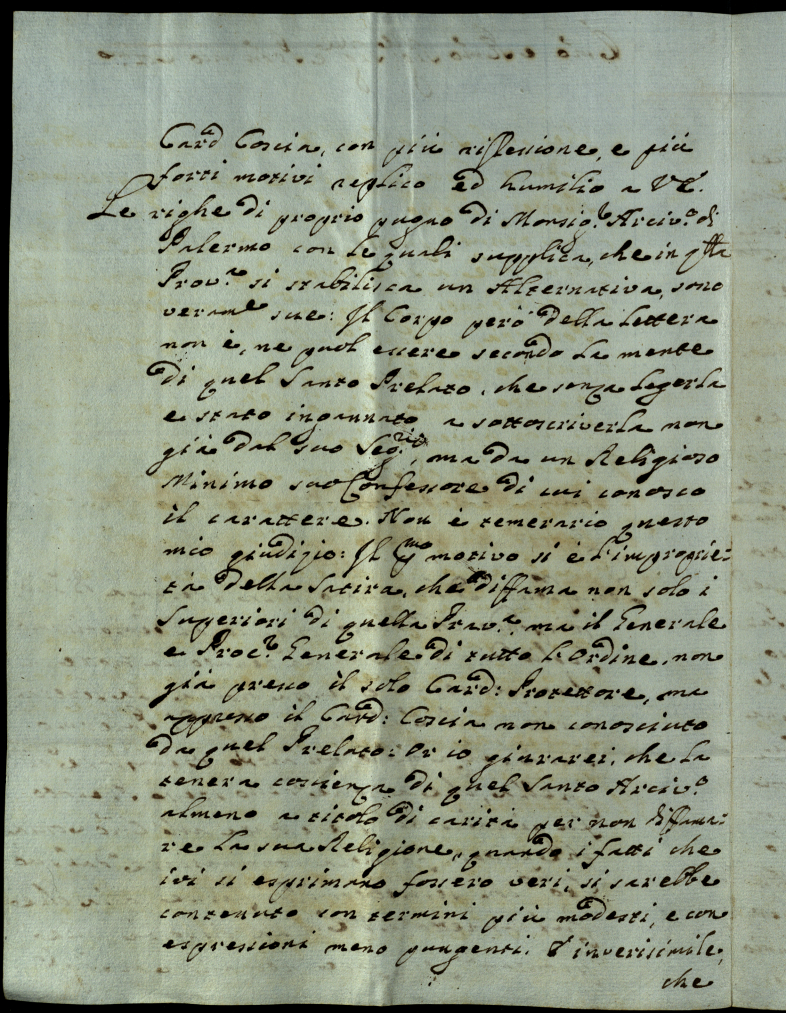 Card Coscia, con più riflessione, e più
forti motivi replico ed humilio a VE.
Le righe di proprio pugno di Monsig.r Arciv.o di
Palermo con le quali supplica, che in q.tta
Prov.a si stabilisca un Alternativa, sono
veram.e sue: Il Corpo però della lettera
non è, ne puol essere secondo la mente
di quel Santo Prelato, che senza legerla
e stato ingannato a sottoscriverla non
già dal suo Seg.rio, ma da un Religioso
Minimo suo Confessore di cui conosco
il carattere. Non è temerario questo
mio giudizio: Il p.mo motivo si è l'improprie=
tà della Satira, che diffama non solo i
Superiori di quella Prov.a, ma il Generale
e Proc.r Generale di tutto l'Ordine, non
già presso il solo Card: Protettore, ma
appresso il Card: Coscia non conosciuto
da quel Prelato: Or io giurarei, che la
tenera coscienza di quel Santo Arciv.o
almeno a titolo di carità per non diffama=
re la sua Religione, quando i fatti che
ivi si esprimano fossero veri, si sarebbe
contenuto con termini più modesti, e con
espressioni meno pungenti. È inverisimile,
che